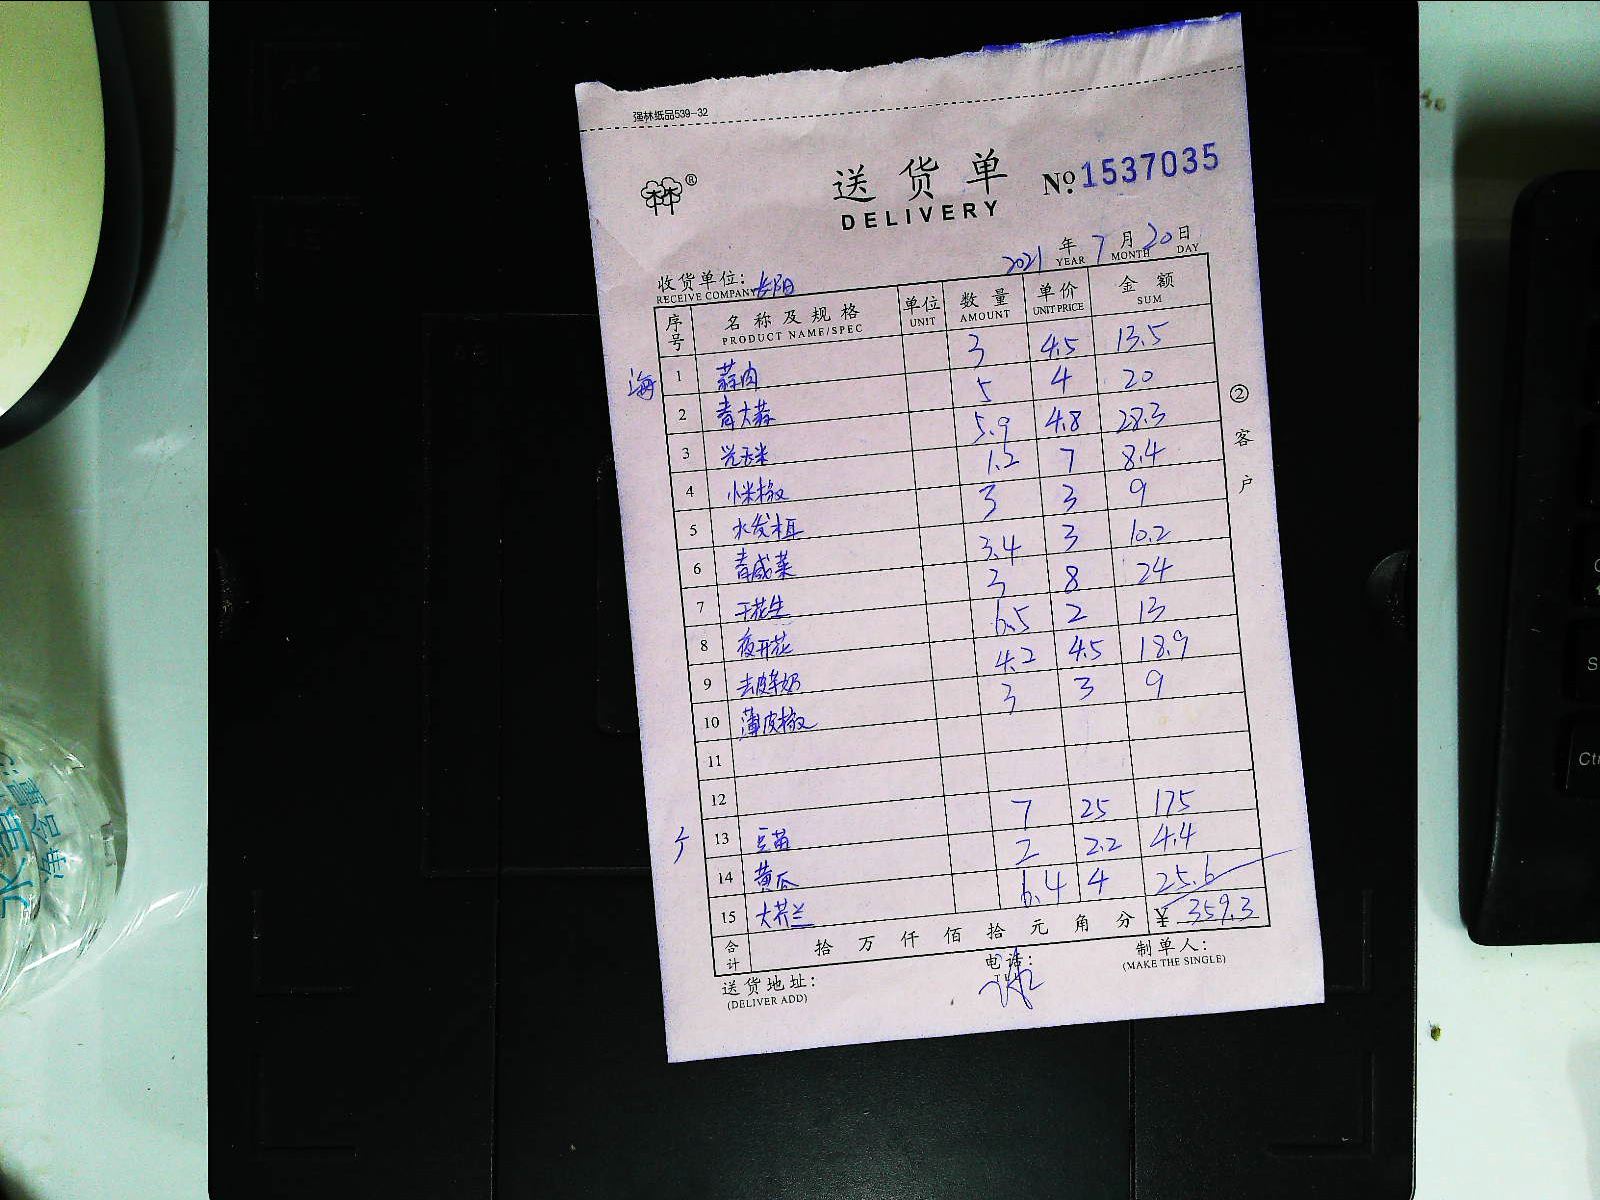 强林纸品539-32
送货单 №1537035
DELIVERY
2021 年 7 月 20 日
YEAR MONTH DAY
收货单位:长阳
RECEIVE COMPANY
序号 名称及规格 单位 数量 单价 金额
PRODUCT NAME/SPEC UNIT AMOUNT UNIT PRICE SUM
海 1 蒜肉 3 4.5 13.5
2 青大蒜 5 4 20
3 光玉米 5.9 4.8 28.3
4 小米椒 1.2 7 8.4
5 水发木耳 3 3 9
6 青咸菜 3.4 3 10.2
7 干花生 3 8 24
8 夜开花 6.5 2 13
9 去皮芋奶 4.2 4.5 18.9
10 薄皮椒 3 3 9
11
12
13 豆苗 7 25 175
14 黄瓜 2 2.2 4.4
15 大芥兰 6.4 4 25.6
合计 拾万仟佰拾元角分 ¥ 359.3
送货地址: 电话: 制单人:
(DELIVER ADD) (MAKE THE SINGLE)
②客户
Ctrl